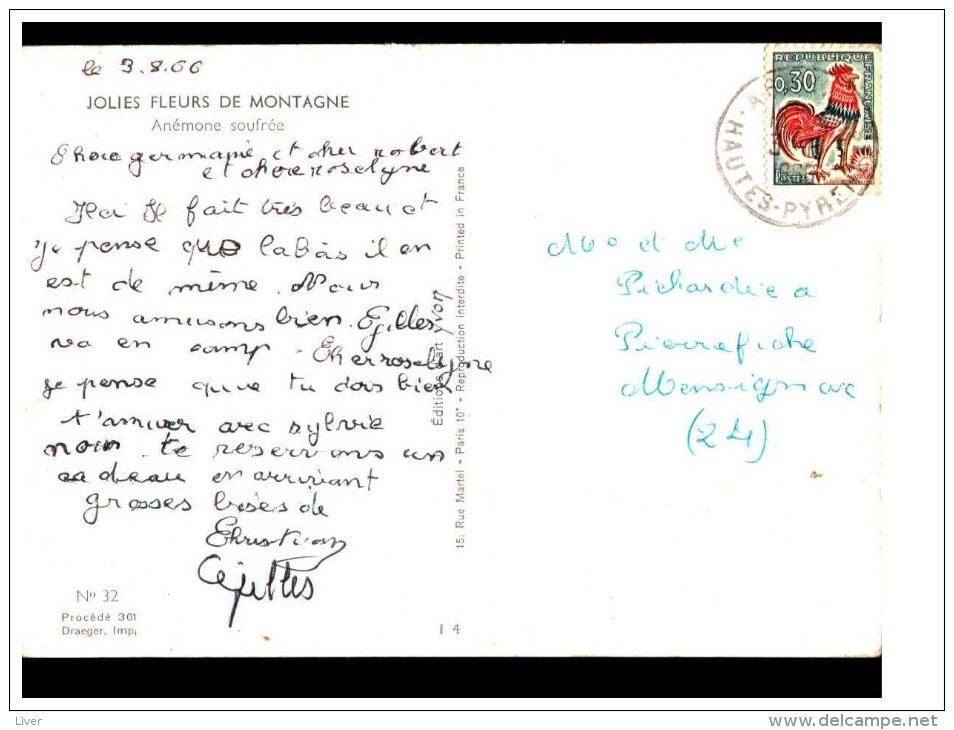 le 3.8.66
JOLIES FLEURS DE MONTAGNE
Anémone soufrée
germaine et cher robert
et chere roselyne
Ici Il fait très beau et
je pense que labas il en
est de même. Nous
nous amusons bien. Gilles
va en camp. Cher roselyne
je pense que tu dois bien
t'amuser avec sylvie
nous te reservons un
cadeau en arrivant
grosses bises de
Christian
Gilles
No 32
Procédé 301
Draeger, Imp.
1 4
Editions d'art YVON
15, Rue Martel - Paris 10e - Reproduction interdite - Printed in France
REPUBLIQUE FRANÇAISE
0,30
POSTES
HAUTES-PYRE
Mr et Me
Pichardie a
Pierrefiche
Mensignac
(24)
Liver
www.delcampe.net